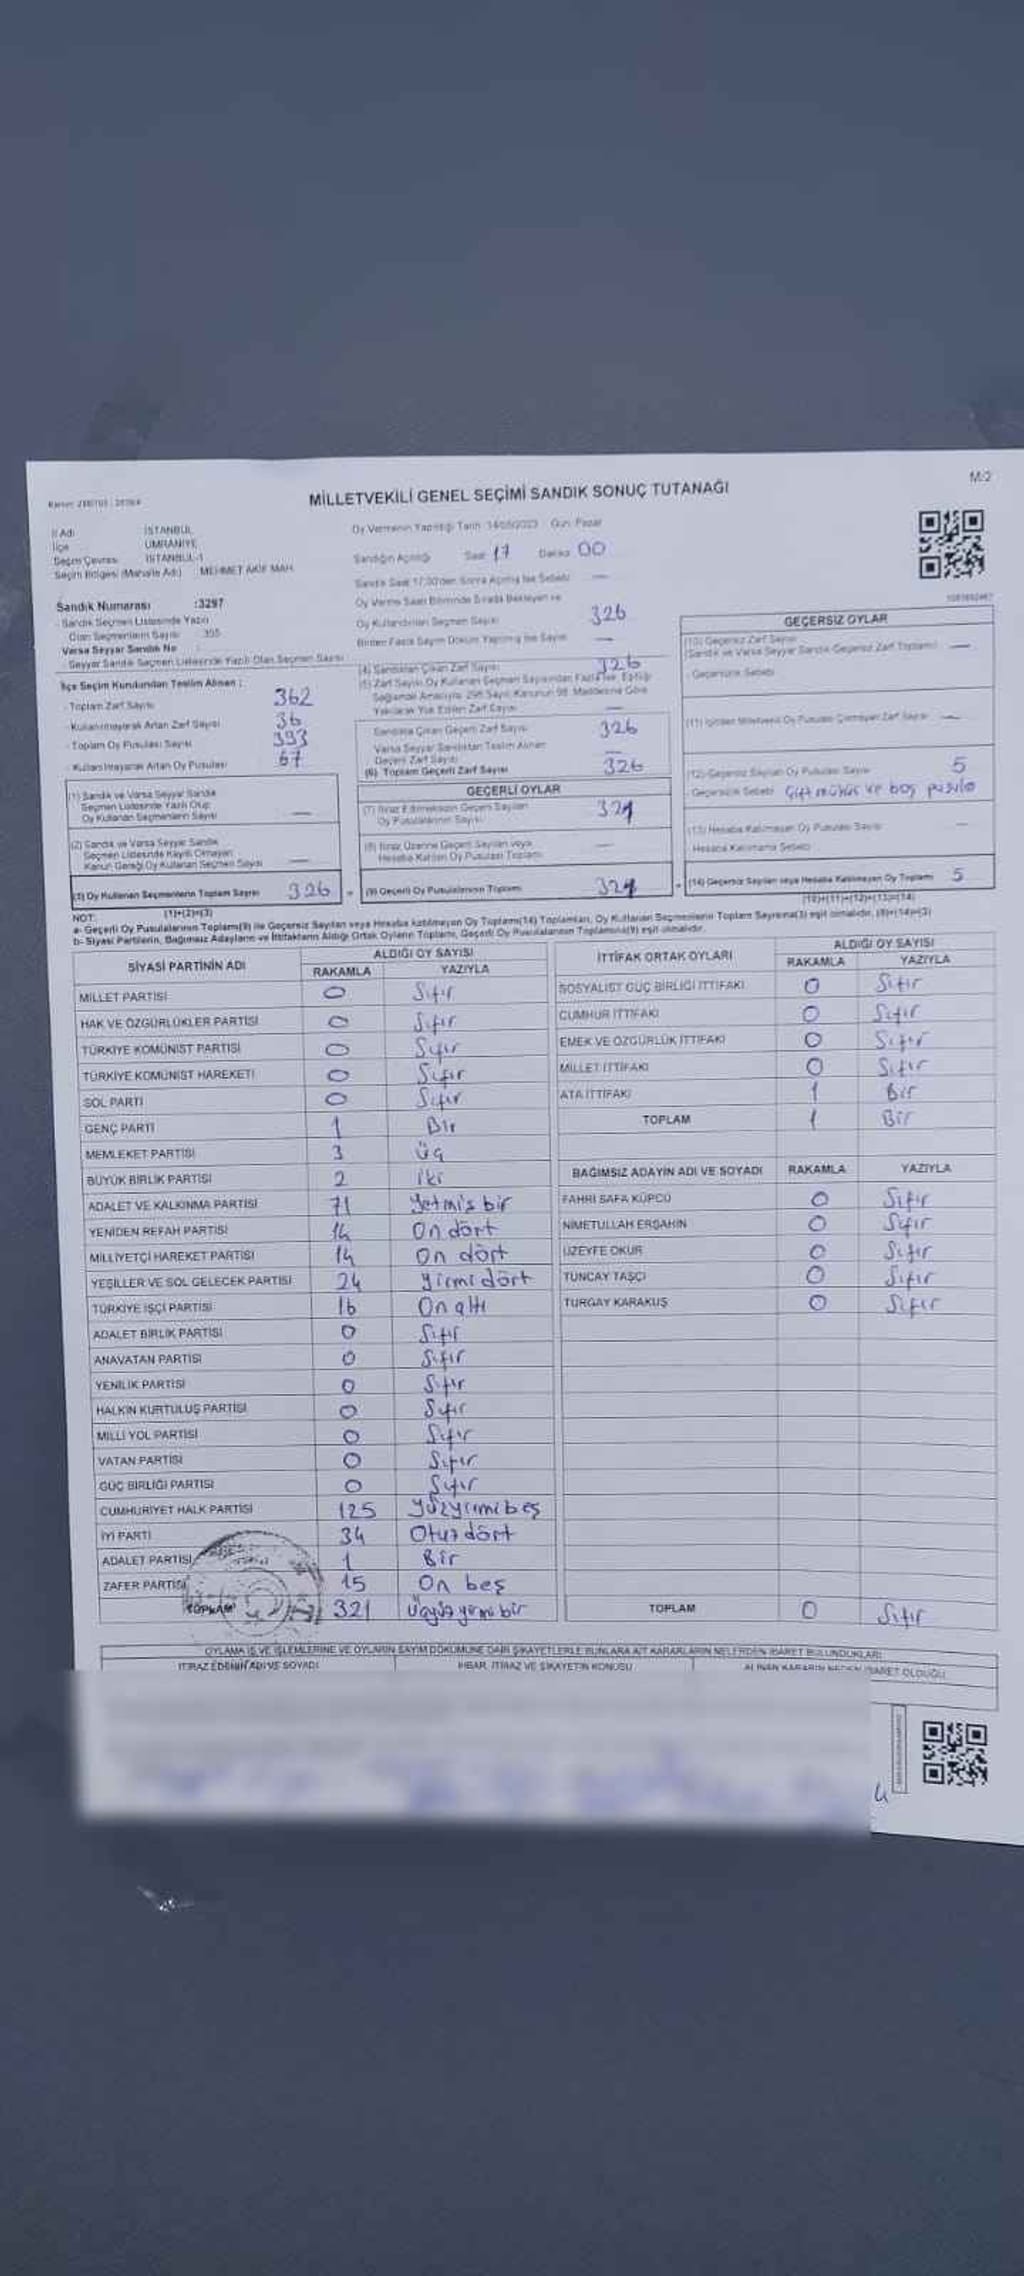 M-2
MİLLETVEKİLİ GENEL SEÇİMİ SANDIK SONUÇ TUTANAĞI
İl Adı İSTANBUL
İlçe ÜMRANİYE
Seçim Çevresi İSTANBUL-1
Seçim Bölgesi (Mahalle Adı) MEHMET AKİF MAH.
Sandık Numarası :3297
Sandık Seçmen Listesinde Yazılı
Olan Seçmenlerin Sayısı
Varsa Seyyar Sandık No
Seyyar Sandık Seçmen Listesinde Yazılı Olan Seçmen Sayısı
Oy Vermenin Yapıldığı Tarih 14/05/2023 Gün Pazar
Sandığın Açıldığı Saat 17 Dakika 00
Sandık Saat 17.00'den Sonra Açılmış İse Sebebi —
Oy Verme Saati Bitiminde Sırada Bekleyen ve
Oy Kullandırılan Seçmen Sayısı 326
Birden Fazla Sayım Döküm Yapılmış İse Sayısı —
İlçe Seçim Kurulundan Teslim Alınan :
- Toplam Zarf Sayısı 362
- Kullanılmayarak Artan Zarf Sayısı 36
- Toplam Oy Pusulası Sayısı 393
- Kullanılmayarak Artan Oy Pusulası 67
(1) Sandık ve Varsa Seyyar Sandık
Seçmen Listesinde Yazılı Olup
Oy Kullanan Seçmenlerin Sayısı —
(2) Sandık ve Varsa Seyyar Sandık
Seçmen Listesinde Kayıtlı Olmayan
Kanun Gereği Oy Kullanan Seçmen Sayısı —
(3) Oy Kullanan Seçmenlerin Toplam Sayısı 326
(1)+(2)=(3)
(4) Sandıktan Çıkan Zarf Sayısı 326
(5) Zarf Sayısı Oy Kullanan Seçmen Sayısından Fazla İse, Eşitliği
Sağlamak Amacıyla 298 Sayılı Kanunun 98. Maddesine Göre
Yakılarak Yok Edilen Zarf Sayısı —
Sandıkta Çıkan Geçerli Zarf Sayısı 326
Varsa Seyyar Sandıktan Teslim Alınan
Geçerli Zarf Sayısı —
(6) Toplam Geçerli Zarf Sayısı 326
GEÇERLİ OYLAR
(7) İtiraz Edilmeksizin Geçerli Sayılan
Oy Pusulalarının Sayısı 321
(8) İtiraz Üzerine Geçerli Sayılan veya
Hesaba Katılan Oy Pusulası Toplamı —
(9) Geçerli Oy Pusulalarının Toplamı 321
GEÇERSİZ OYLAR
(10) Geçersiz Zarf Sayısı
(Sandık ve Varsa Seyyar Sandık Geçersiz Zarf Toplamı) —
Geçersizlik Sebebi
(11) İçinden Milletvekili Oy Pusulası Çıkmayan Zarf Sayısı —
(12) Geçersiz Sayılan Oy Pusulası Sayısı 5
Geçersizlik Sebebi Çift mühür ve boş pusula
(13) Hesaba Katılmayan Oy Pusulası Sayısı —
Hesaba Katılmama Sebebi
(14) Geçersiz Sayılan veya Hesaba Katılmayan Oy Toplamı 5
(10)+(11)+(12)+(13)=(14)
NOT:
a- Geçerli Oy Pusulalarının Toplamı(9) ile Geçersiz Sayılan veya Hesaba katılmayan Oy Toplamı(14) Toplamları, Oy Kullanan Seçmenlerin Toplam Sayısına(3) eşit olmalıdır. (9)+(14)=(3)
b- Siyasi Partilerin, Bağımsız Adayların ve İttifakların Aldığı Ortak Oyların Toplamı, Geçerli Oy Pusulalarının Toplamına(9) eşit olmalıdır.
SİYASİ PARTİNİN ADI ALDIĞI OY SAYISI
RAKAMLA YAZIYLA
MİLLET PARTİSİ 0 Sıfır
HAK VE ÖZGÜRLÜKLER PARTİSİ 0 Sıfır
TÜRKİYE KOMÜNİST PARTİSİ 0 Sıfır
TÜRKİYE KOMÜNİST HAREKETİ 0 Sıfır
SOL PARTİ 0 Sıfır
GENÇ PARTİ 1 Bir
MEMLEKET PARTİSİ 3 Üç
BÜYÜK BİRLİK PARTİSİ 2 iki
ADALET VE KALKINMA PARTİSİ 71 Yetmiş bir
YENİDEN REFAH PARTİSİ 14 On dört
MİLLİYETÇİ HAREKET PARTİSİ 14 On dört
YEŞİLLER VE SOL GELECEK PARTİSİ 24 Yirmi dört
TÜRKİYE İŞÇİ PARTİSİ 16 On altı
ADALET BİRLİK PARTİSİ 0 Sıfır
ANAVATAN PARTİSİ 0 Sıfır
YENİLİK PARTİSİ 0 Sıfır
HALKIN KURTULUŞ PARTİSİ 0 Sıfır
MİLLİ YOL PARTİSİ 0 Sıfır
VATAN PARTİSİ 0 Sıfır
GÜÇ BİRLİĞİ PARTİSİ 0 Sıfır
CUMHURİYET HALK PARTİSİ 125 Yüzyirmibeş
İYİ PARTİ 34 Otuz dört
ADALET PARTİSİ 1 Bir
ZAFER PARTİSİ 15 On beş
TOPLAM 321 Üçyüz yirmi bir
İTTİFAK ORTAK OYLARI ALDIĞI OY SAYISI
RAKAMLA YAZIYLA
SOSYALİST GÜÇ BİRLİĞİ İTTİFAKI 0 Sıfır
CUMHUR İTTİFAKI 0 Sıfır
EMEK VE ÖZGÜRLÜK İTTİFAKI 0 Sıfır
MİLLET İTTİFAKI 0 Sıfır
ATA İTTİFAKI 1 Bir
TOPLAM 1 Bir
BAĞIMSIZ ADAYIN ADI VE SOYADI RAKAMLA YAZIYLA
FAHRİ SAFA KÜPCÜ 0 Sıfır
NİMETULLAH ERŞAHİN 0 Sıfır
ÜZEYFE OKUR 0 Sıfır
TUNCAY TAŞÇI 0 Sıfır
TURGAY KARAKUŞ 0 Sıfır
TOPLAM 0 Sıfır
OYLAMA İŞ VE İŞLEMLERİNE VE OYLARIN SAYIM DÖKÜMÜNE DAİR ŞİKAYETLERLE BUNLARA AİT KARARLARIN NELERDEN İBARET BULUNDUKLARI
İTİRAZ EDENİN ADI VE SOYADI İHBAR, İTİRAZ VE ŞİKAYETİN KONUSU ALINAN KARARIN NEDEN İBARET OLDUĞU